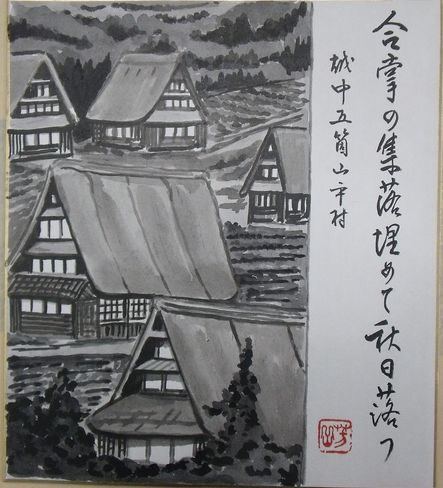 合掌の集落埋めて秋日落つ
越中五箇山平村
芳山